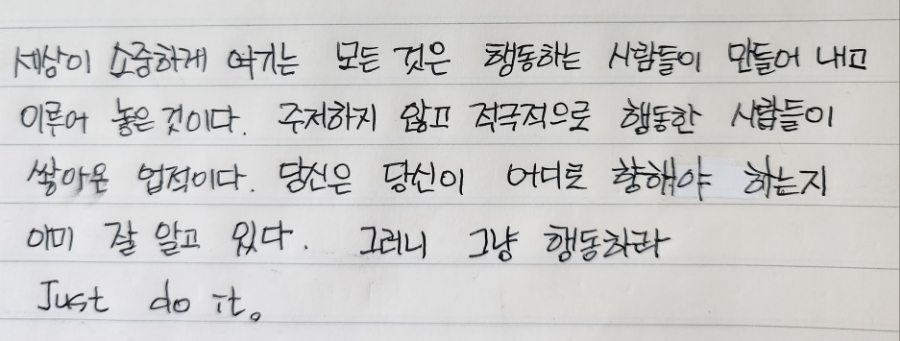 세상이 소중하게 여기는 모든 것은 행동하는 사람들이 만들어 내고
이루어 놓은 것이다. 주저하지 않고 적극적으로 행동한 사람들이
쌓아온 업적이다. 당신은 당신이 어디로 향해야 하는지
이미 잘 알고 있다. 그러니 그냥 행동하라
Just do it。